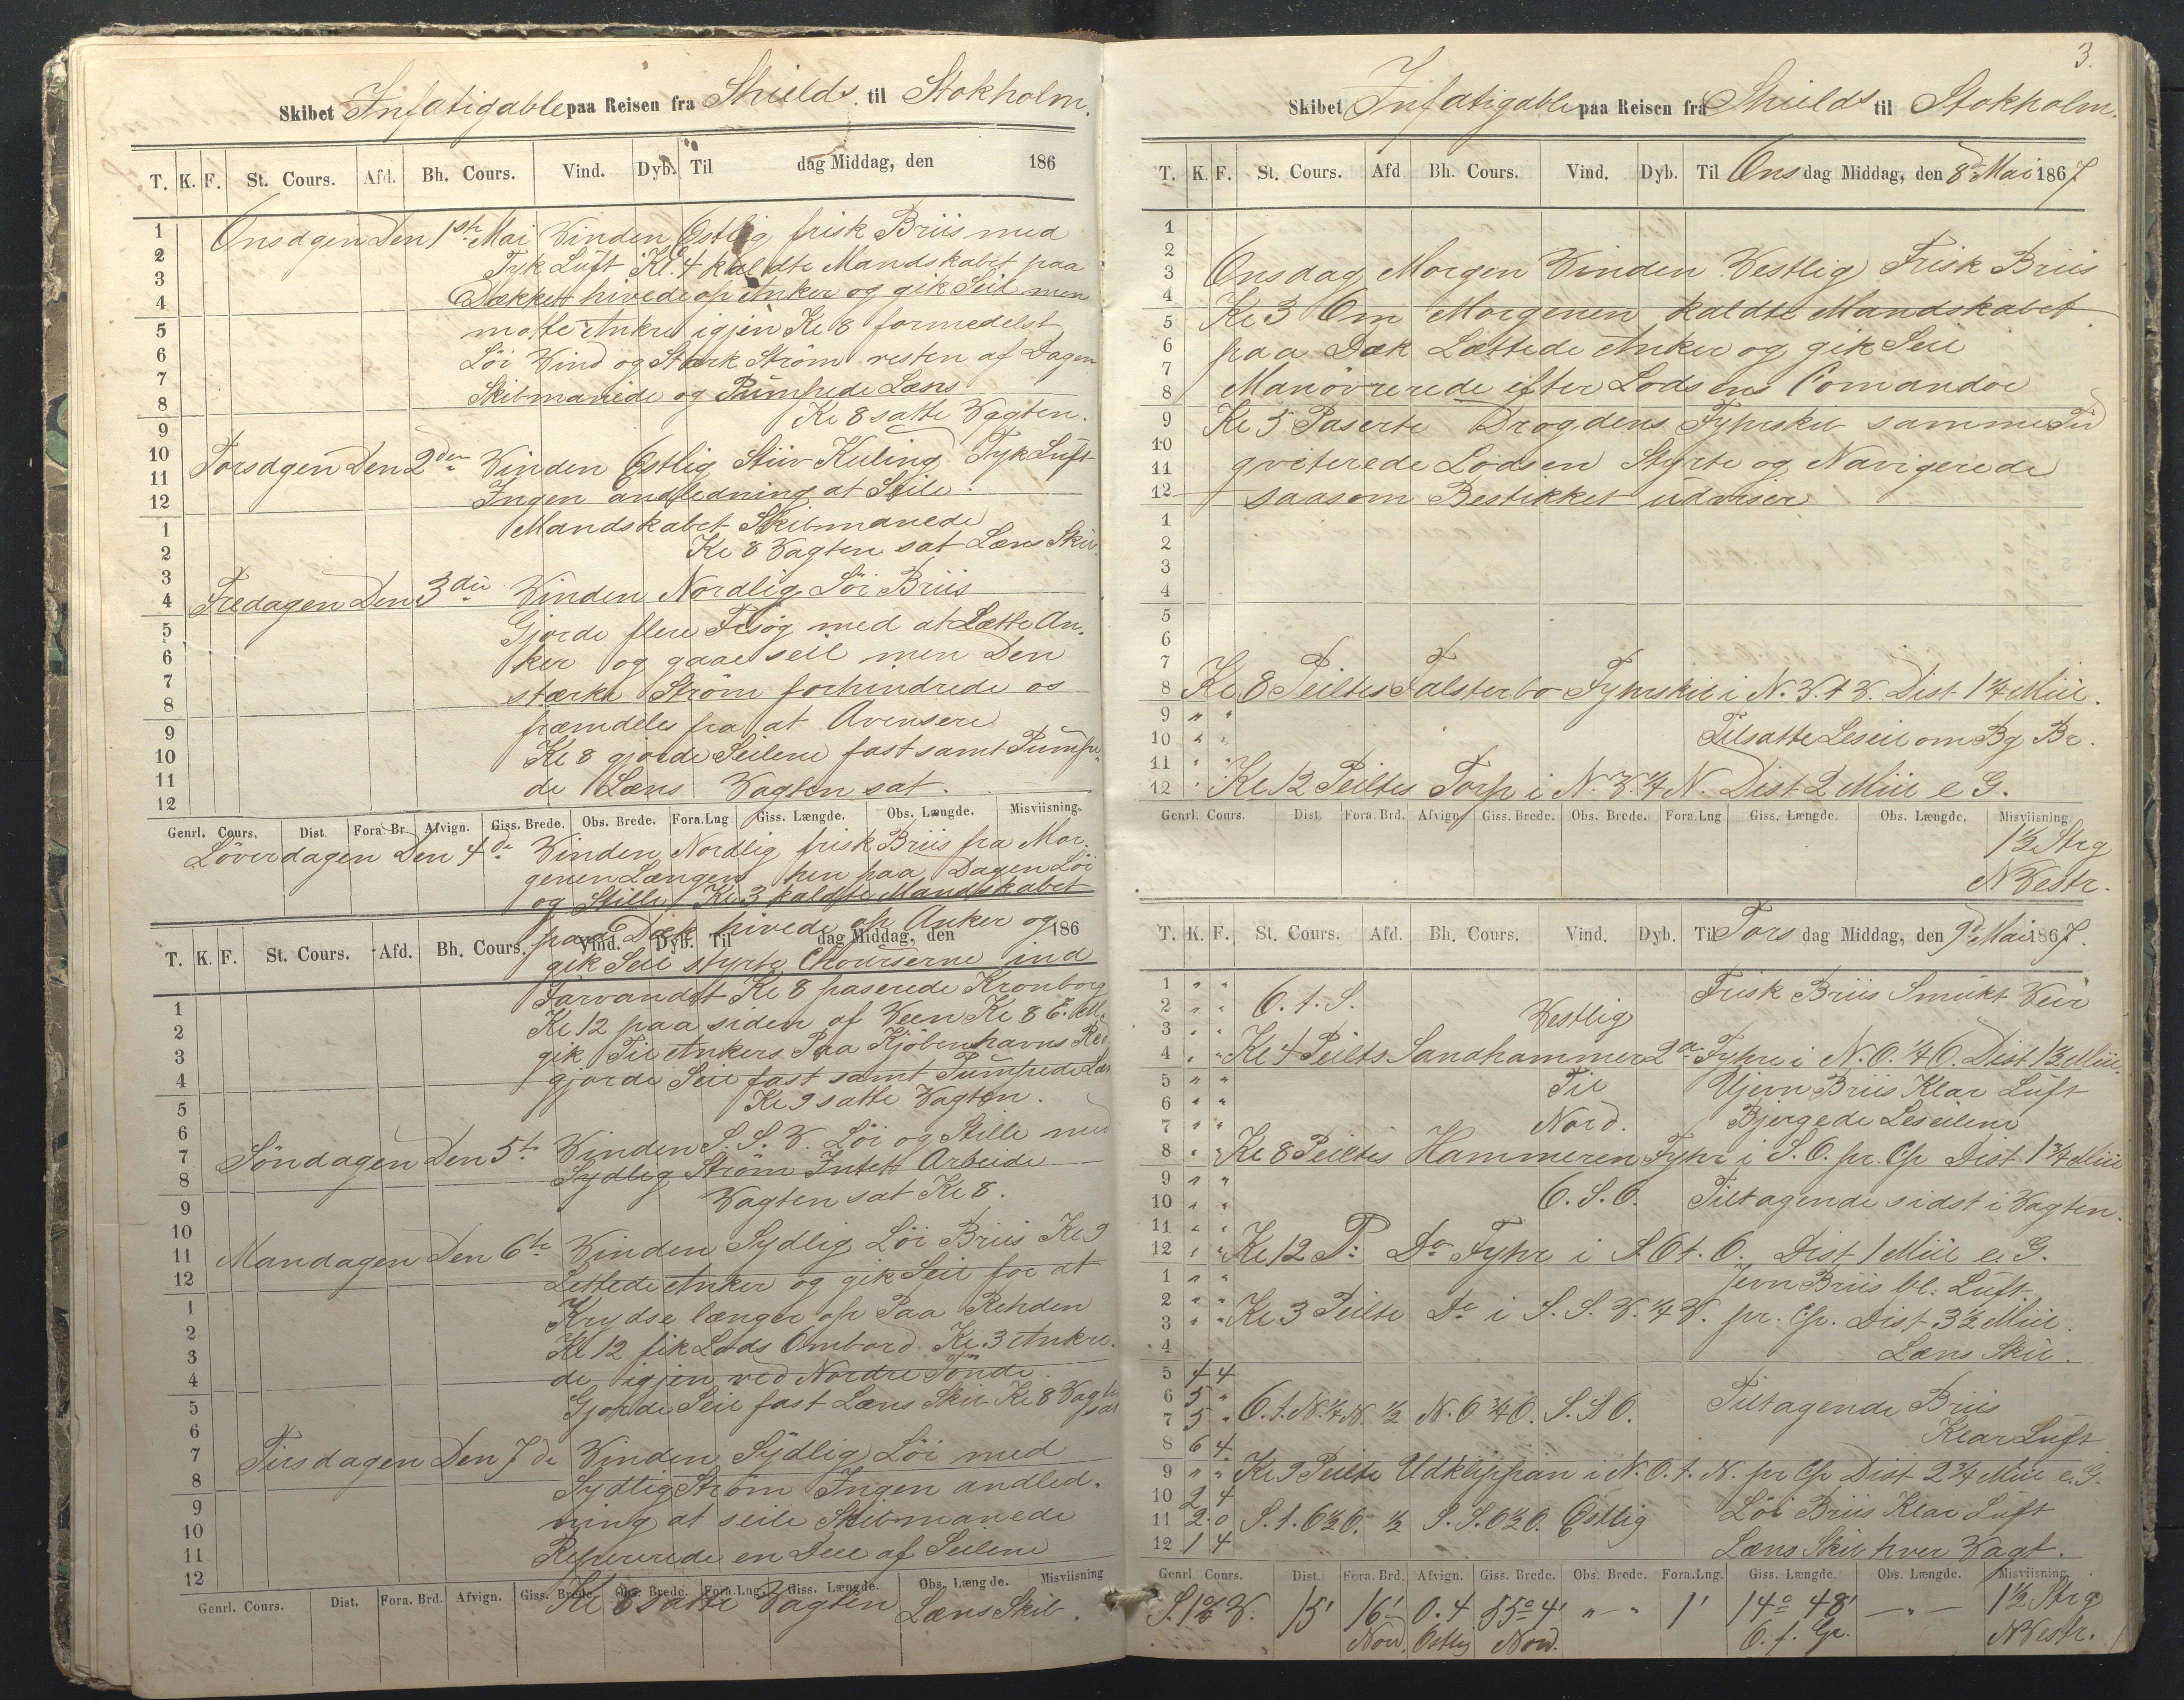 Skibet Infatigable paa Reisen fra Shields til Stokholm.
T. K. F. St. Cours. Afd. Bh. Cours. Vind. Dyb. Til dag Middag, den 186
Onsdagen Den 1ste Mai Vinden Østlig frisk Briis med
Tyk Luft Kl. 4 kaldte Mandskabet paa
Dækket hivede op Anker og gik Seil men
motte Ankre igjen Kl 8 formedelst
Løi Vind og Stærk Strøm resten af Dagen
Skibmanede og Pumpede Læns
Kl 8 satte Vagten.
Torsdagen Den 2den Vinden Østlig Stiiv Kuling Tyk Luft
Ingen andledning at Seile.
Mandskabet Skibmanede
Kl 8 Vagten sat Læns Skib
Fredagen Den 3die Vinden Nordlig Løi Briis
Gjorde flere Forsøg med at Lætte An-
ker og gaae seil men Den
stærke Strøm forhindrede os
fremdeles fra at Avensere
Kl 8 gjorde Seilene fast samt Pumpe-
de Læns Vagten sat.
Genrl. Cours. Dist. Fora Br. Afvign. Giss. Brede. Obs. Brede. Fora.Lng Giss. Længde. Obs. Længde. Misviisning.
Løverdagen Den 4de Vinden Nordlig frisk Briis fra Mor-
genen Længere hen paa Dagen Løi
og Stille Kl 3 kaldte Mandskabet
paa Dæk hivede op Anker og
T. K. F. St. Cours. Afd. Bh. Cours. Vind. Dyb. Til dag Middag, den 186
gik Seil styrte Courserne ind
Farvandet Kl 8 paserede Kronborg
Kl 12 paa siden af Veen Kl 8 E. M.
gik Til Ankers Paa Kjøbenhavns Red
gjorde Seil fast samt Pumpede Læns
Kl 9 satte Vagten.
Søndagen Den 5te Vinden S. S. V. Løi og Stille med
Sydlig Strøm Intett Arbeide
Vagten sat Kl 8.
Mandagen Den 6te Vinden Sydlig Løi Briis Kl 9
Lettede Anker og gik Seil for at
Krydse længer op Paa Rehden
Kl 12 fik Lods Ombord Kl. 3 Ankre-
de igjen ved Nordre Tønde
Gjorde Seil fast Læns Skib Kl 8 Vagten sat
Tirsdagen Den 7de Vinden Sydlig Løi med
Sydlig Strøm Ingen andled-
ning at seile Skibmanede
Repererede en Deel af Seilene
Genrl. Cours. Dist. Fora. Brd. Afvign. Giss. Brede. Obs. Brede. Fora.Lng. Giss. Længde. Obs. Længde. Misviisning
Kl 8 satte Vagten Læns Skib.
3.
Skibet Infatigable paa Reisen fra Shields til Stokholm.
T. K. F. St. Cours. Afd Bh. Cours. Vind. Dyb. Til Onsdag Middag, den 8de Mai 1867
Onsdag Morgen Vinden Vestlig Frisk Briis
Kl 3 Om Morgenen kaldte Mandskabet
paa Dæk Lættede Anker og gik Seil
Manøvrerede efter Lodsens Comandoe
Kl 5 Paserte Drogdens Fyhrskib samme Tid
qviterede Lodsen Styrte og Navigerede
saasom Bestikket udviser
Kl 8 Peiltes Falsterbo Fyhrskib i N. V. t V. Dist 1 1/4 Miil.
Tilsatte Leseil om Bg Br.
Kl 12 Peiltes Torp i N. V. 1/4 N. Dist 2 Miil e G.
Genrl. Cours. Dist. Fora. Brd. Afvign Giss. Brede. Obs. Brede. Fora.Lng. Giss. Længde. Obs. Længde. Misviisning
1 1/2 Strg
NVestr.
T. K. F. St. Cours. Afd. Bh. Cours. Vind. Dyb. Til Torsdag Middag, den 9de Mai 1867.
Frisk Briis Smukt Veir
O. t. S. Vestlig
Kl 4 Peiltes Sandhammer 2de Fyhre i N. O. 1/4 O. Dist 1 1/2 Miil.
Til Ujevn Briis Klar Luft
Nord. Bjergede Leseilene
Kl 8 Peiltes Hammeren Fyhr i S. O. pr. Cp Dist 1 3/4 Miil
O. S. O. Tiltagende sidst i Vagten.
Kl 12 P: Do Fyhr i S. O t. O. Dist 1 Miil e. G.
Jevn Briis bl: Luft.
Kl 3 Peilte Do i S. S. V. 1/4 V. pr. Cp. Dist 3 1/2 Miil.
Læns Skib.
4 4
5 " O. t. N. 1/4 N. 1/2 N. O 3/4 O. S. S O. Tiltagende Briis
5 "
6 4 Klar Luft
Kl 9 Peilte Udklippan i N. O. t. N. pr Cp Dist 2 3/4 Miil e. G.
2 4
2 0 S. t. O 1/2 O. 1/2 S. S. O 1/2 O. Østlig Løi Briis Klar Luft
1 4 Læns Skib hver Vagt.
Genrl Cours. Dist. Fora. Brd. Afvign. Giss. Brede. Obs. Brede. Fora.Lng. Giss. Længde. Obs. Længde. Misviisning
15' 16' 0.4 55° 4' " - " 1' 14° 48' - " - 1 1/2 Strg
Nord. Østlig Nord. O. f. Gr. NVestr.